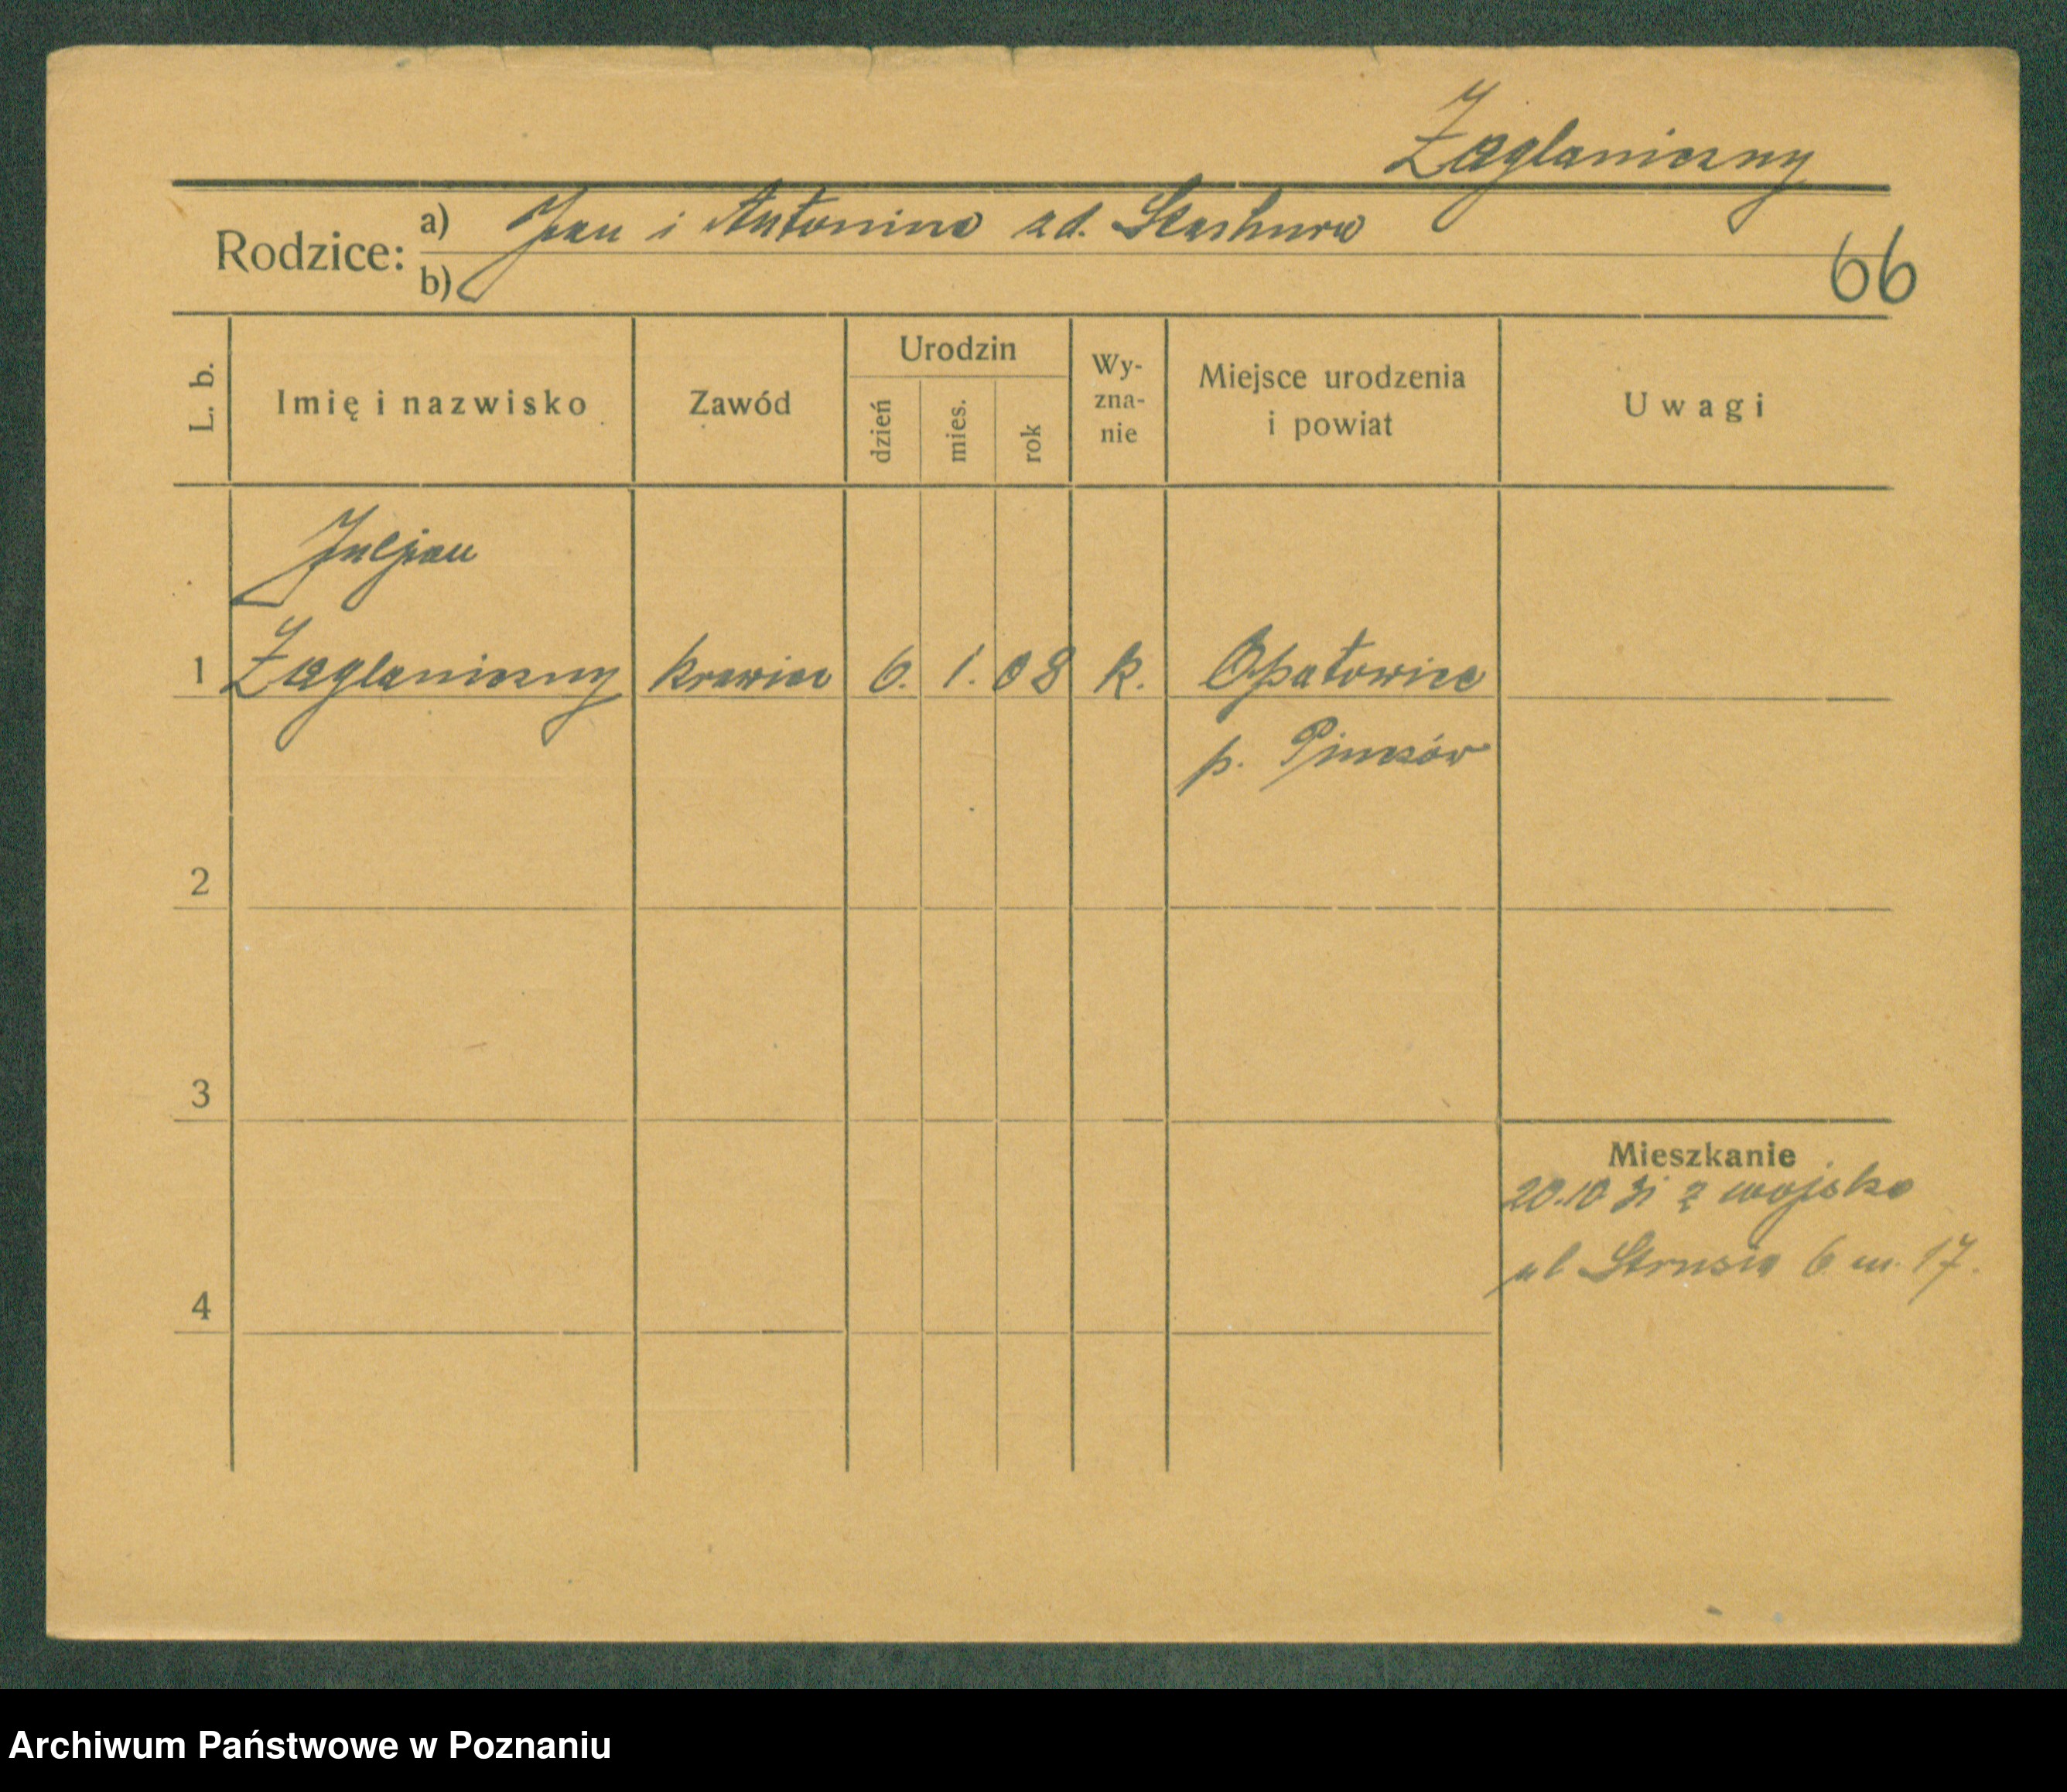 Zaglaniczny
Rodzice: a) Jan i Antonina zd.
b)
66
L. b.
Imię i nazwisko
Zawód
Urodzin
dzień
mies.
rok
Wy-
zna-
nie
Miejsce urodzenia
i powiat
Uwagi
Juljan
1 Zaglaniczny krawiec 6. 1. 08 k. Opatowiec
p. Pinczów
2
3
Mieszkanie
20.10 31 z wojska
ul Strusia 6 m. 17.
4
Archiwum Państwowe w Poznaniu